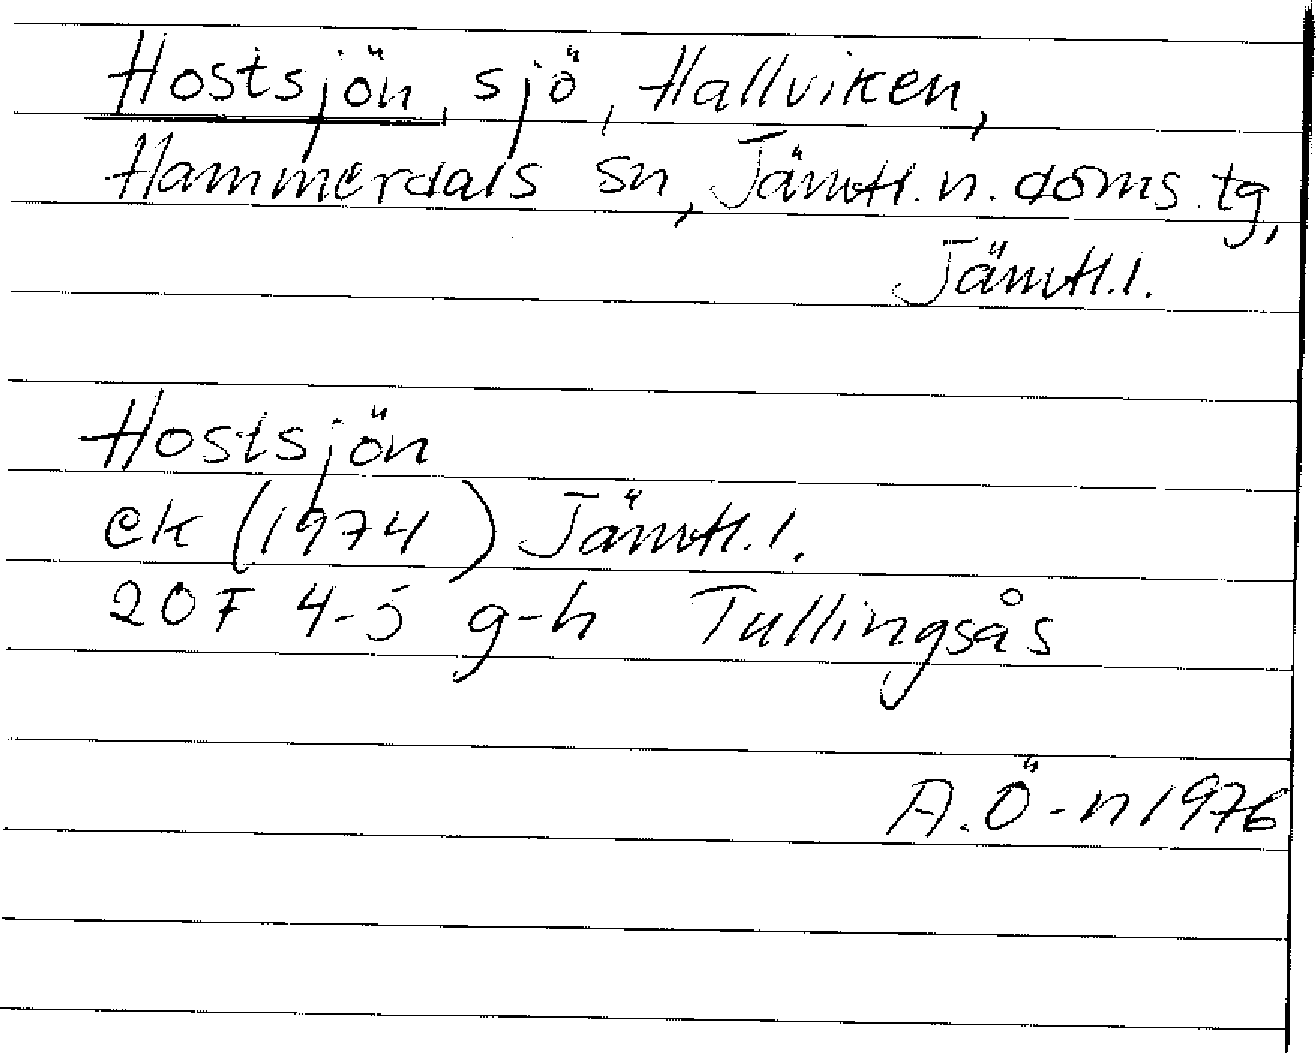 Hostsjön, sjö, Hallviken,
Hammerdals sn, Jämtl. n. doms. tg,
Jämtl. l.
Hostsjön
ek (1974) Jämtl. l.
20F 4-5 g-h Tullingsås
A. Ö-n 1976